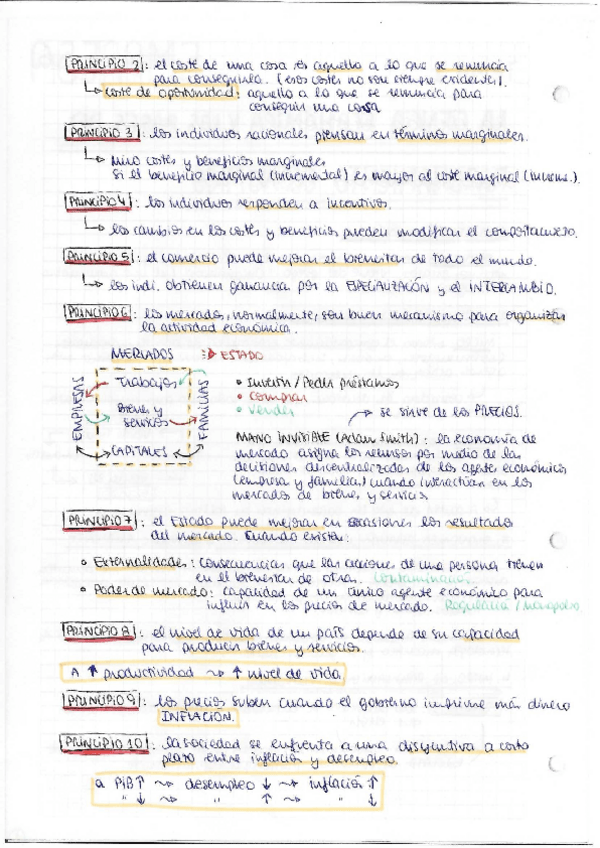 PRINCIPIO 2: el coste de una cosa es aquello a lo que se renuncia
para conseguirla. (esos costes no son siempre evidentes).
↳ Coste de oportunidad: aquello a lo que se renuncia para
conseguir una cosa
PRINCIPIO 3: los individuos racionales piensan en términos marginales.
↳ Miro costes y beneficios marginales
Si el beneficio marginal (incremental) es mayor al coste marginal (increm.)
PRINCIPIO 4: los individuos responden a incentivos.
↳ los cambios en los costes y beneficios pueden modificar el comportamiento.
PRINCIPIO 5: el comercio puede mejorar el bienestar de todo el mundo.
↳ los indi. obtienen ganancia por la ESPECIALIZACIÓN y el INTERCAMBIO.
PRINCIPIO 6: los mercados, normalmente, son buen mecanismo para organizar
la actividad económica.
MERCADOS
ESTADO
EMPRESAS
Trabajos
Bienes y
servicios
CAPITALES
FAMILIAS
• Invertir / Pedir préstamos
• Comprar
• Vender
→ se sirve de los PRECIOS.
MANO INVISIBLE (Adam Smith): la economía de
mercado asigna los recursos por medio de las
decisiones descentralizadas de los agentes económicos
(empresa y familia) cuando interactúan en los
mercados de bienes y servicios
PRINCIPIO 7: el Estado puede mejorar en ocasiones los resultados
del mercado. Cuando existen:
• Externalidades: Consecuencias que las acciones de una persona tienen
en el bienestar de otra.
• Poder de mercado: capacidad de un único agente económico para
influir en los precios de mercado. Regulación / monopolio
PRINCIPIO 8: el nivel de vida de un país depende de su capacidad
para producir bienes y servicios.
A ↑ productividad ⇝ ↑ nivel de vida
PRINCIPIO 9: los precios suben cuando el gobierno imprime más dinero
INFLACIÓN.
PRINCIPIO 10: la sociedad se enfrenta a una disyuntiva a corto
plazo entre inflación y desempleo.
a PIB ↑ ⇝ desempleo ↓ ⇝ inflación ↑
" ↓ ⇝ " ↑ ⇝ " ↓